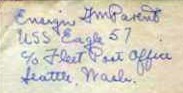 Ensign Wm Parent
USS Eagle 57
c/o Fleet Post Office
Seattle, Wash.